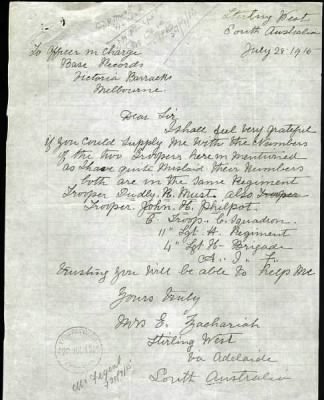 Stirling West
South Australia
July 28. 1916
To Officer in Charge
Base Records
Victoria Barracks
Melbourne
Dear Sir
I shall feel very grateful
if you could supply me with the Numbers
of the two Troopers herein mentioned
as I have quite mislaid their Numbers
both are in the same Regiment
Trooper Dudly H. Must. also Trooper
Trooper. John. H. Philpot
C Troop. C. Squadron.
11" Lgt. H. Regiment
4" Lgt H. Brigade
A. I. F.
Trusting you will be able to help me
Yours truly
Mrs E. Zachariah
Stirling West
via Adelaide
South Australia